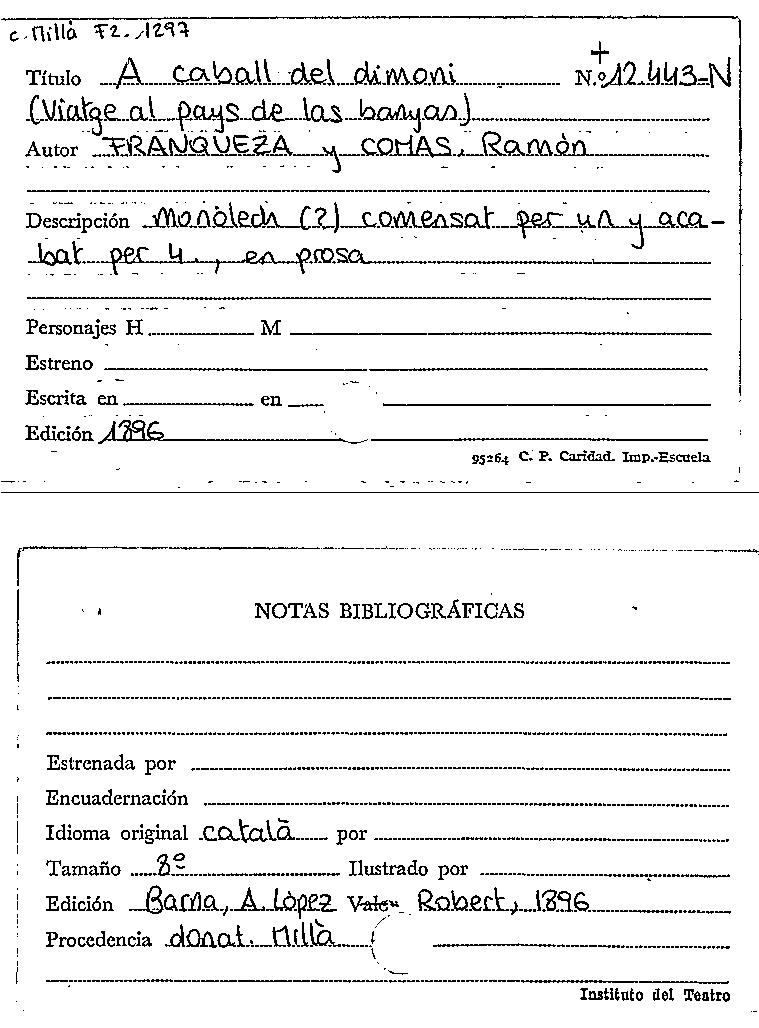 c. Millà F2. 1297
+
Título A caball del dimoni N.º 12.443-N
(Viatge al pays de las banyas)
Autor FRANQUEZA y COMAS, Ramón
Descripción Monòlech (?) comensat per un y aca-
bat per 4., en prosa
Personajes H M
Estreno
Escrita en en
Edición 1896
95264 C. P. Caridad. Imp.-Escuela
NOTAS BIBLIOGRÁFICAS
Estrenada por
Encuadernación
Idioma original català por
Tamaño 8º Ilustrado por
Edición Barna, A. López Robert, 1896
Procedencia donat. Millà
Instituto del Teatro